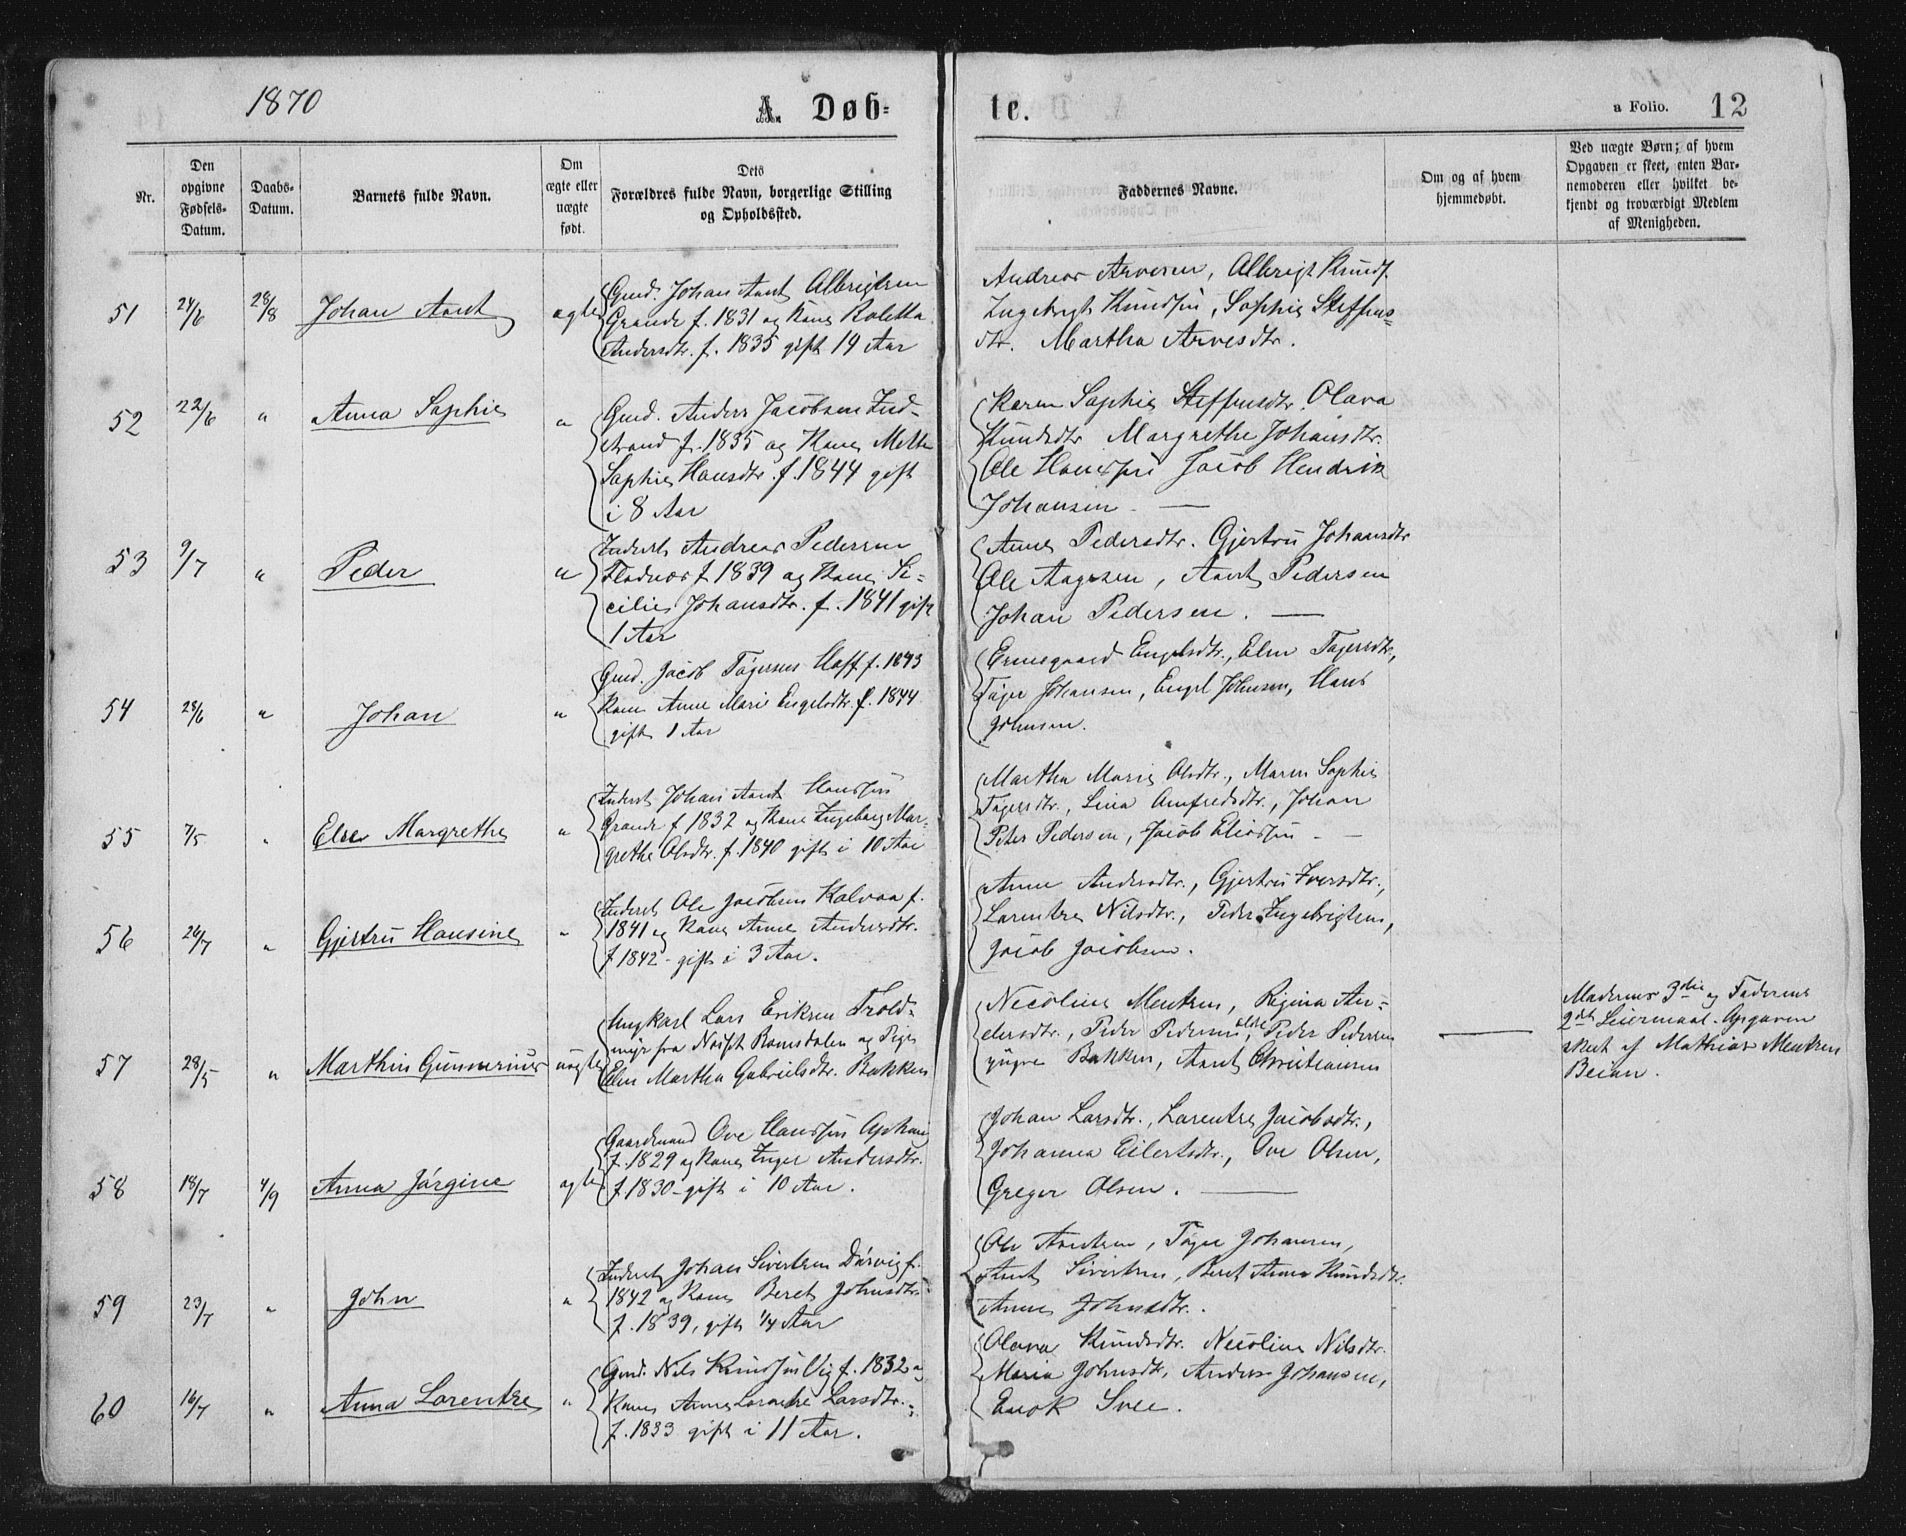 1870
A. Døb=
te.
a Folio. 12
Nr.
Den opgivne Fødsels-Datum.
Daabs-Datum.
Barnets fulde Navn.
Om ægte eller uægte født.
Dets
Forældres fulde Navn, borgerlige Stilling
og Opholdssted.
Faddernes Navne.
Om og af hvem
hjemmedøbt.
Ved uægte Børn; af hvem
Opgaven er skeet, enten Bar-
nemoderen eller hvilket be-
kjendt og troværdigt Medlem
af Menigheden.
51 24/6 28/8 Johan Arnt ægte
Gmd. Johan Arnt Albrigtsen
Grande f. 1831 og Kone Roletta
Andersdtr. f. 1835 gift 14 Aar
Andreas Arvesen, Albrigt Knuds.
Ingebrigt Knudsen, Sophie Steffens=
dtr. Martha Arvesdtr.
52 22/6 " Anna Sophie "
Gmd. Anders Jacobsen Ind-
strand f. 1835 og Kone Mette
Sophie Hansdtr. f. 1844 gift
i 8 Aar
Karen Sophie Steffensdtr. Olava
Knudsdtr Margrethe Johansdtr.
Ole Hansen Jacob Hendrik
Johansen. —
53 9/7 " Peder "
Inderst Andreas Pedersen
Fladnes f 1839 og Kone Se-
cilie Johansdtr. f. 1841 gift
1 Aar
Anne Pedersdtr. Gjertru Johansdtr
Ole Aagesen, Arnt Pedersen
Johan Pedersen. —
54 28/6 " Johan "
Gmd. Jacob Tøgersen Hoff f. 1843
Kone Anne Marie Engelsdtr. f. 1844
gift 1 Aar
Ermegaard Engelsdtr., Elen Tøgersdtr,
Tøger Johansen, Engel Johnsen, Hans
Johnsen.
55 7/5 " Else Margrethe "
Inderst Johan Arnt Hansen
Grande f 1832 og Kone Ingeborg Mar-
grethe Olsdtr. f. 1840 gift i 10 Aar
Martha Marie Olsdtr., Maren Sophie
Tøgersdtr., Lina Arnfredsdtr., Johan
Peter Pedersen, Jacob Eliassen —
56 24/7 " Gjertru Hansine "
Inderst Ole Jacobsen Kalvaa f.
1841 og Kone Anne Andersdtr.
f 1842 - gift i 3 Aar.
Anne Andersdtr., Gjertru Iversdtr.,
Larentse Nilsdtr., Peder Ingebrigtsen,
Jacob Jacobsen.
57 28/5 " Marthin Gunnerius uægte
Ungkarl Lars Eriksen Trold-
myr fra Romsdalen og Pige
Elen Martha Gabrielsdtr. Bakken
Necoline Mentsen, Regina An-
dersdtr., Peder Pedersen ældre, Peder Pedersen
yngre Bakken, Arnt Christiansen
—
Moderens 3die og Faderens
2det Leiermaal. Opgaven
skeet af Mathias Mentsen
Beian.
58 18/7 4/9 Anna Jørgine ægte
Gaardmand Ove Hansen Ophaug
f. 1829 og Kone Inger Andersdtr.
f. 1830 - gift i 10 Aar.
Johan Larsdtr., Larentse Jacobsdtr.,
Johanna Eilertsdtr., Ove Olsen,
Greger Olsen. —
59 23/7 " John "
Inderst Johan Sivertsen Dørvig f.
1842 og Kone Beret Johnsdtr.
f. 1839, gift 1/4 Aar
Ole Arntsen, Tøger Johansen,
Arnt Sivertsen, Beret Anna Knudsdtr.
Anne Johnsdtr.
60 16/7 " Anna Larentse "
Gmd. Nils Knudsen Vig f. 1832 og
Kone Anne Larentse Larsdtr.
f. 1833 gift i 11 Aar.
Olava Knudsdtr. Necoline Nilsdtr.
Maria Johnsdtr, Anders Johansen,
Enok Svee.